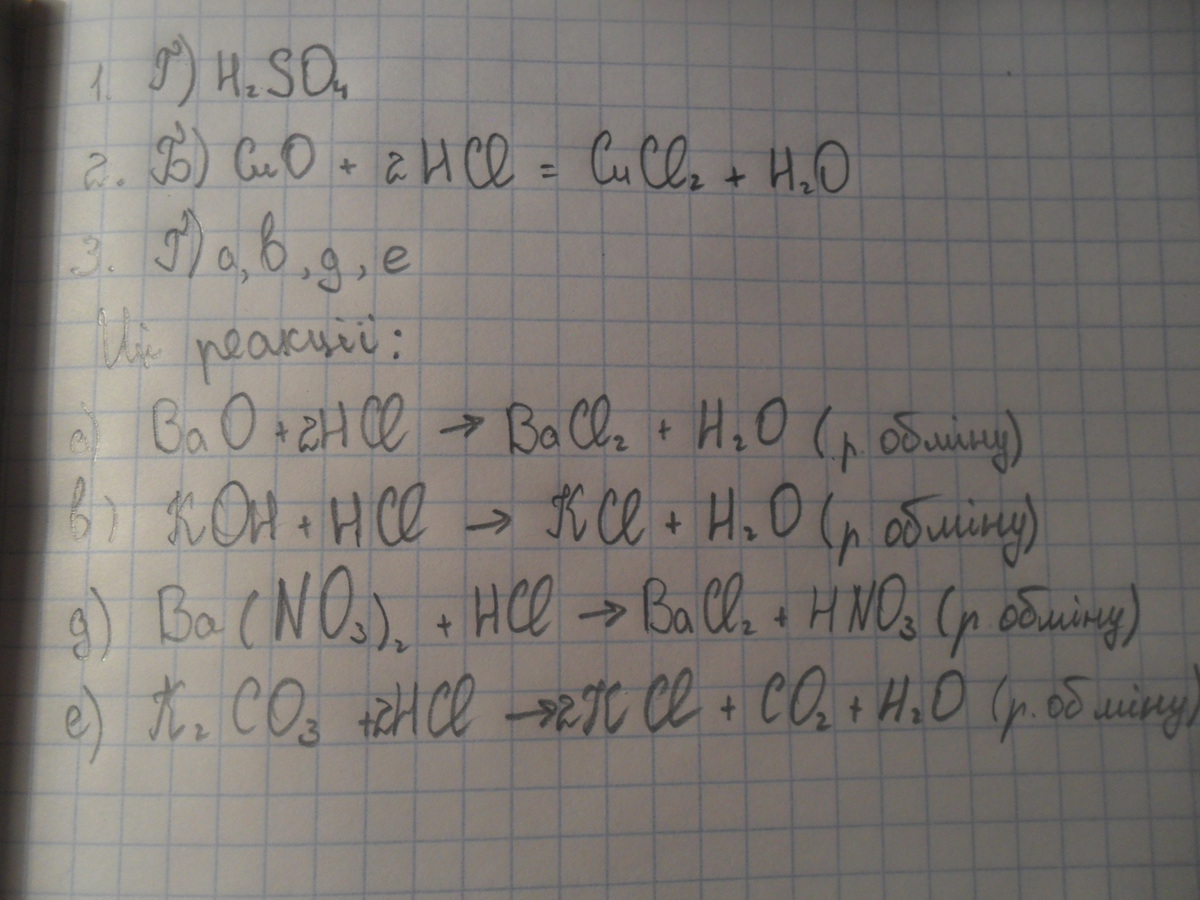 1. Г) H₂SO₄
2. Б) CuO + 2HCl = CuCl₂ + H₂O
3. Г) а, в, д, е
Ці реакції:
а) BaO + 2HCl → BaCl₂ + H₂O (р. обміну)
в) KOH + HCl → KCl + H₂O (р. обміну)
д) Ba(NO₃)₂ + HCl → BaCl₂ + HNO₃ (р. обміну)
е) K₂CO₃ + 2HCl → 2KCl + CO₂ + H₂O (р. обміну)